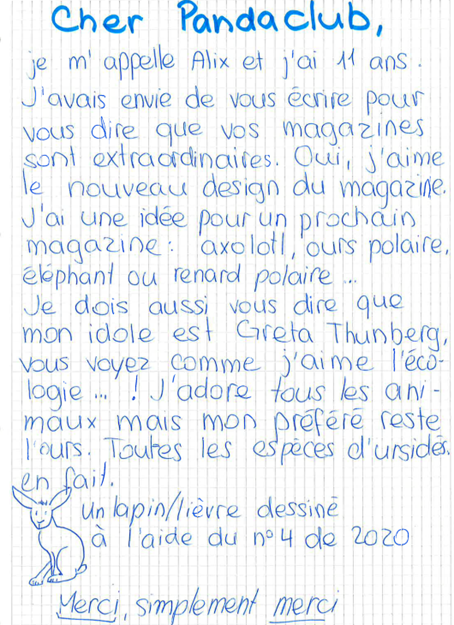 Cher Pandaclub,
je m'appelle Alix et j'ai 11 ans.
J'avais envie de vous écrire pour
vous dire que vos magazines
sont extraordinaires. Oui, j'aime
le nouveau design du magazine.
J'ai une idée pour un prochain
magazine: axolotl, ours polaire,
éléphant ou renard polaire...
Je dois aussi vous dire que
mon idole est Greta Thunberg,
vous voyez comme j'aime l'éco-
logie...! J'adore tous les ani-
maux mais mon préféré reste
l'ours. Toutes les espèces d'ursidés.
en fait.
un lapin/lièvre dessiné
à l'aide du n°4 de 2020
Merci, simplement merci